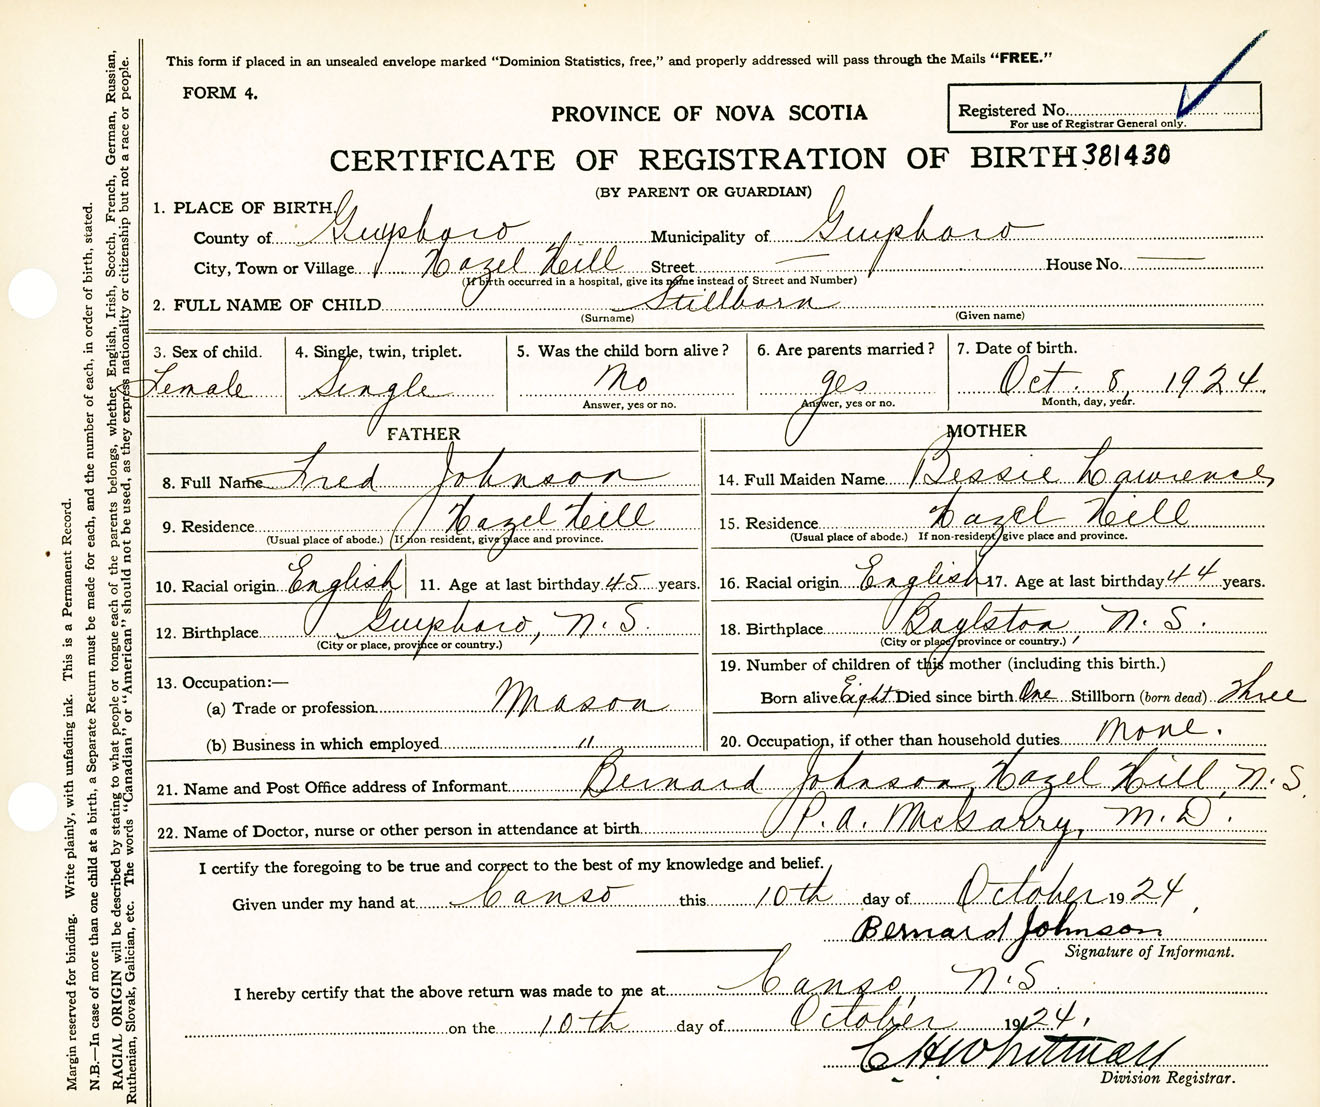 This form if placed in an unsealed envelope marked "Dominion Statistics, free," and properly addressed will pass through the Mails "FREE."
FORM 4.
PROVINCE OF NOVA SCOTIA
Registered No.
For use of Registrar General only.
CERTIFICATE OF REGISTRATION OF BIRTH 381430
(BY PARENT OR GUARDIAN)
1. PLACE OF BIRTH.
County of Guysboro Municipality of Guysboro
City, Town or Village Hazel Hill Street — House No. —
(If birth occurred in a hospital, give its name instead of Street and Number)
2. FULL NAME OF CHILD Stillborn
(Surname) (Given name)
3. Sex of child. 4. Single, twin, triplet. 5. Was the child born alive? 6. Are parents married? 7. Date of birth.
Female Single No yes Oct. 8, 1924.
Answer, yes or no. Answer, yes or no. Month, day, year.
FATHER
8. Full Name Fred Johnson
9. Residence Hazel Hill
(Usual place of abode.) (If non resident, give place and province.
10. Racial origin English 11. Age at last birthday 45 years.
12. Birthplace Guysboro, N.S.
(City or place, province or country.)
13. Occupation:—
(a) Trade or profession Mason
(b) Business in which employed "
MOTHER
14. Full Maiden Name Bessie Lawrence
15. Residence Hazel Hill
(Usual place of abode.) If non-resident, give place and province.
16. Racial origin English 17. Age at last birthday 44 years.
18. Birthplace Boylston, N.S.
(City or place, province or country.)
19. Number of children of this mother (including this birth.)
Born alive Eight Died since birth One Stillborn (born dead) Three
20. Occupation, if other than household duties None.
21. Name and Post Office address of Informant Bernard Johnson, Hazel Hill, N.S.
22. Name of Doctor, nurse or other person in attendance at birth P. A. McGarry, M.D.
I certify the foregoing to be true and correct to the best of my knowledge and belief.
Given under my hand at Canso this 10th day of October 1924,
Bernard Johnson
Signature of Informant.
I hereby certify that the above return was made to me at Canso, N.S.
on the 10th day of October 1924,
C H Whitman
Division Registrar.
Margin reserved for binding. Write plainly, with unfading ink. This is a Permanent Record.
N.B.—In case of more than one child at a birth, a Separate Return must be made for each, and the number of each, in order of birth, stated.
RACIAL ORIGIN will be described by stating to what people or tongue each of the parents belongs, whether English, Irish, Scotch, French, German, Russian,
Ruthenian, Slovak, Galician, etc. The words "Canadian" or "American" should not be used, as they express nationality or citizenship but not a race or people.